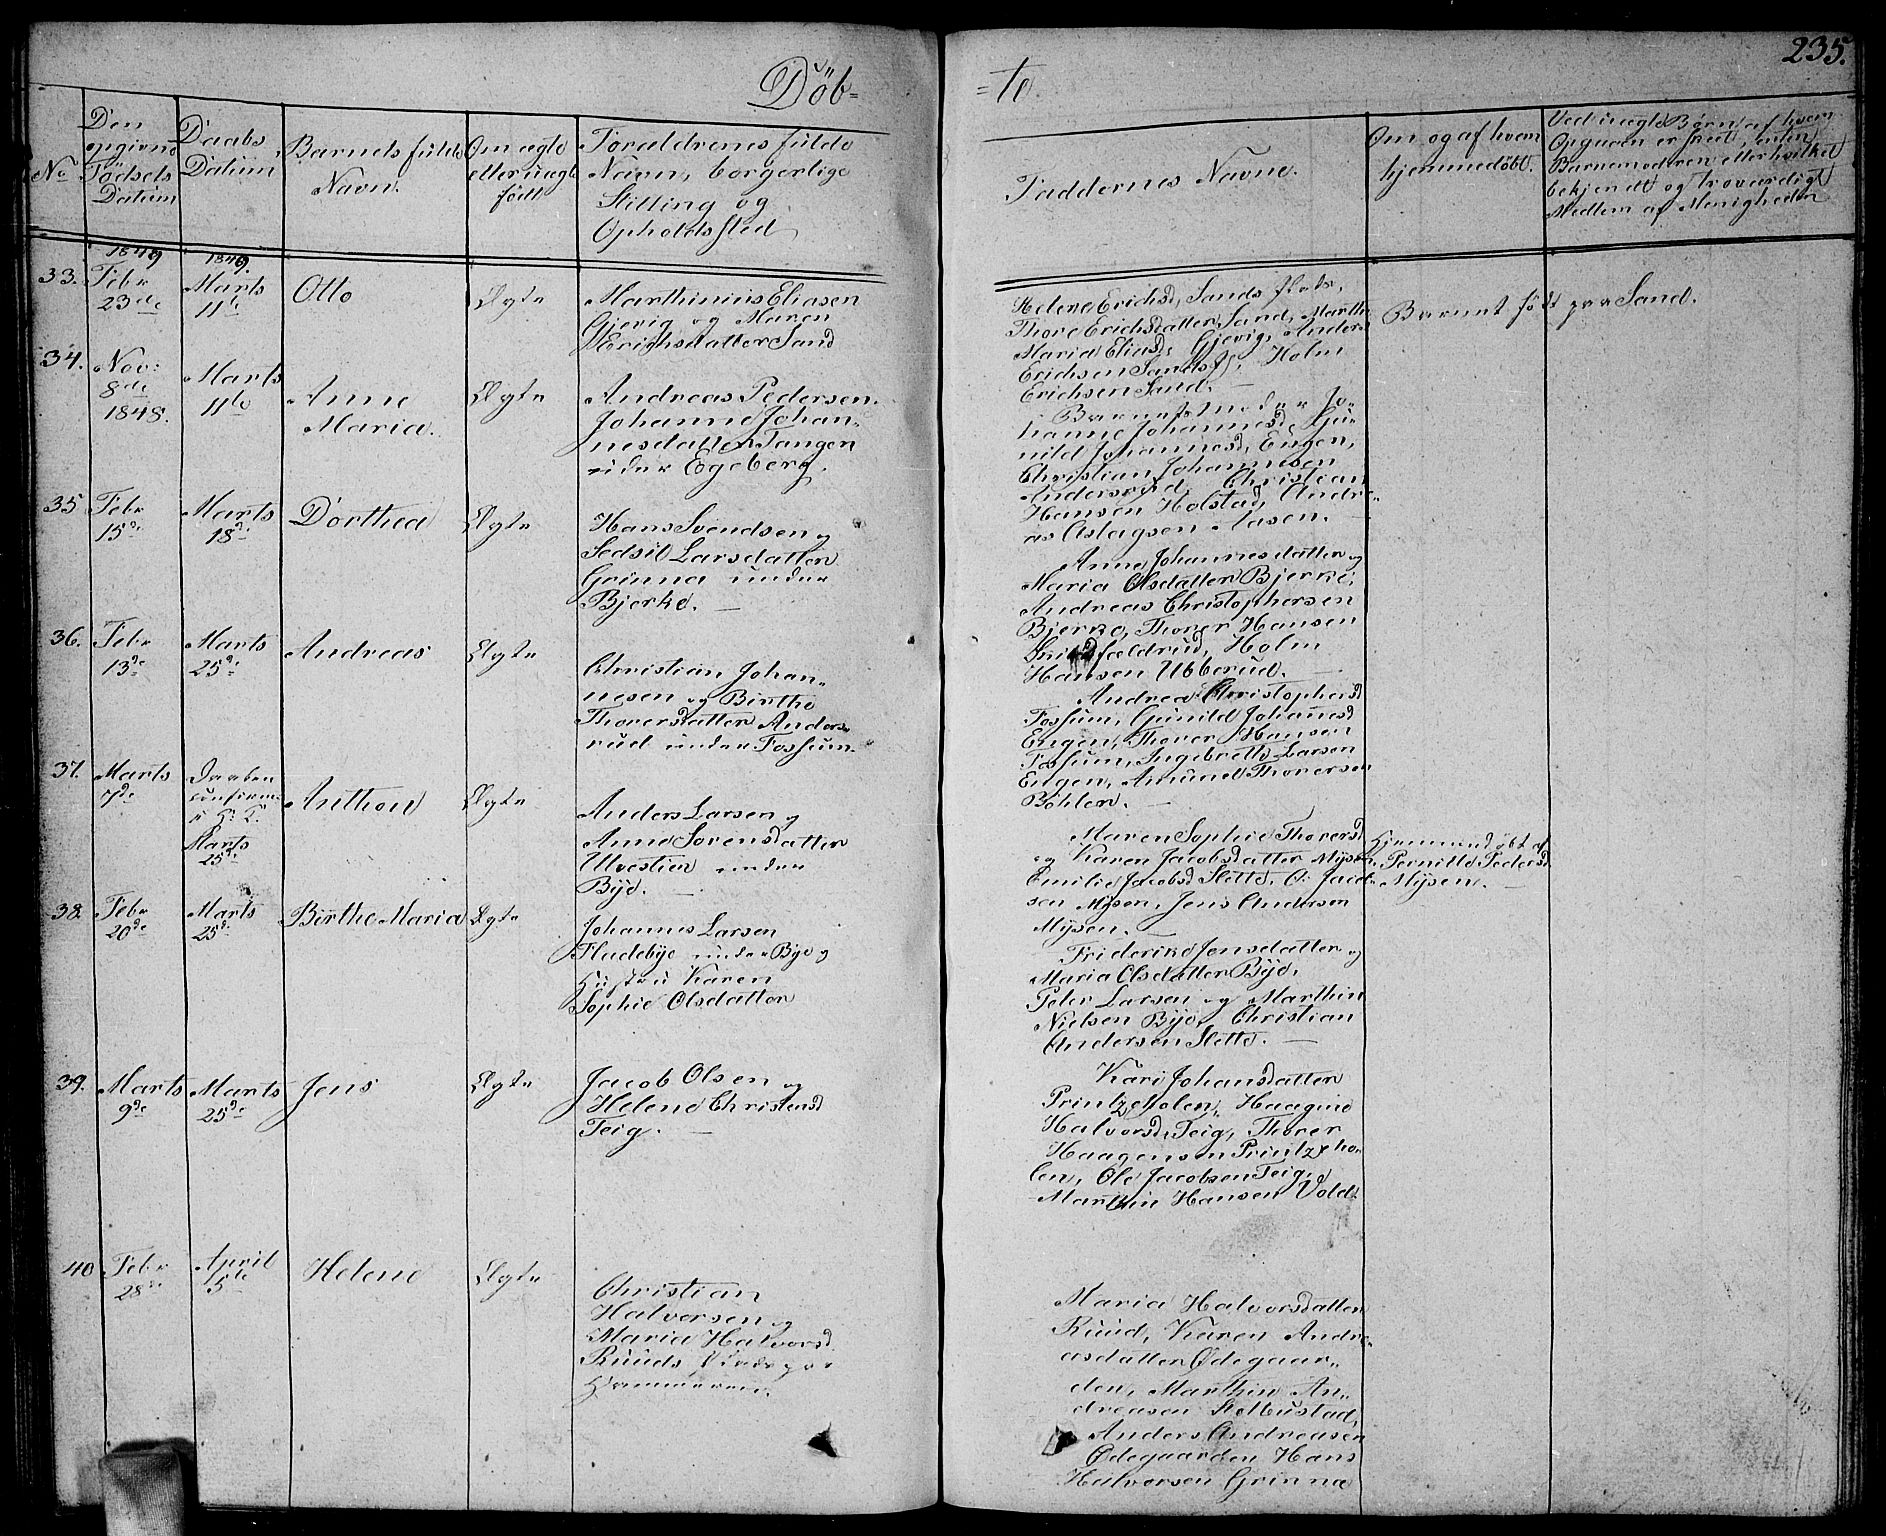 235.
Döb=
=te
No
Den
opgivne
Födsels
Datum
Daabs
Datum
Barnets fulde
Navn.
Om ægte
eller uægte
født
Forældrenes fulde
Navn, borgerlige
Stilling og
Opholdssted
Faddernes Navne.
Om og af hvem
hjemmedöbt.
Ved uægte Børn af hvem
Opgaven er skeet, enten
Barnemoderen eller hvilket
bekjendt og troværdigt
Medlem af Menigheden
33.
1849
Febr
23de
1849.
Marts
11te
Otto
Ægte
Marthinius Eliasen
Gjevig og Maren
Erichsdatter Sand
Helene Erichsd, Sands
Thore Erichsdatter Sand, Marthe
Maria Eliasd, Gjevig, Anders
Erichsen Sand, Holm
Erichsen Sand.
Barnet født paa Sand.
34.
Nov:
8de
1848.
Marts
11te
Anne
Maria.
Ægte
Andreas Pedersen
Johanne Johan-
nesdatter Tangen
under Egeberg.
Barnets Moder Jo-
hanne Johannesd, Gu-
nild Johannesd, Engen,
Christian Johannesen
Andersrud, Christian
Hansen Holstad, Andre-
as Aslagsen Aasen.
35
Febr
15de
Marts
18de
Dorthea
Ægte
Hans Svendsen og
Sedsil Larsdatter
Grinna under
Bjerke.
Anne Johannesdatter og
Maria Olsdatter Bjerke,
Andreas Christophersen
Bjerke, Thorer Hansen
Holm
Hansen Ubberud.
36.
Febr
13de
Marts
25de
Andreas
Ægte
Christian Johan-
nesen og Birthe
Thorersdatter Anders-
rud under Fossum.
Andrea Christophersd
Fossum, Gunild Johannesd
Engen, Thorer Hansen
Fossum, Ingebreth Larsen
Engen, Amund Thorersen
Böhler.
37.
Marts
7de
Daaben
confirm:
i H: K.
Marts
25de
Anthon
Ægte
Anders Larsen og
Anne Sorensdatter
Ulvestien under
Bÿe.
Maren Sophie Thorersd
og Karen Jacobsdatter Mysen,
Emilie Jacobsd Slette, O: Jacob-
sen Mysen, Jens Andersen
Mysen.
Hjemmedöbt af
Pernille Pedersd
Mysen.
38.
Febr
20de
Marts
25de
Birthe Maria
Ægte
Johannes Larsen
Fladebÿe under Bÿe og
Hustru Karen
Sophie Olsdatter
Friderike Jensdatter og
Maria Olsdatter Bÿe,
Peter Larsen og Marthin
Nielsen Bÿe, Christian
Andersen Slette.
39.
Marts
9de
Marts
25de
Jens
Ægte
Jacob Olsen og
Helene Christensd
Teig.
Kari Johansdatter
Printzeholen, Haagine
Halvorsd, Teig, Thorer
Haagensen Printzeho-
len, Ole Jacobsen Teig,
Marthin Hansen Vold.
40
Febr
28de
April
5te
Helene
Ægte
Christian
Halvorsen og
Maria Halvorsd
Ruuds
Hammeren.
Maria Halvorsdatter
Ruud, Karen Andre-
asdatter Ødegaar-
den, Marthin An-
dreasen Molbustad,
Anders Andreasen
Ødegaarden Hans
Halvorsen Grinna